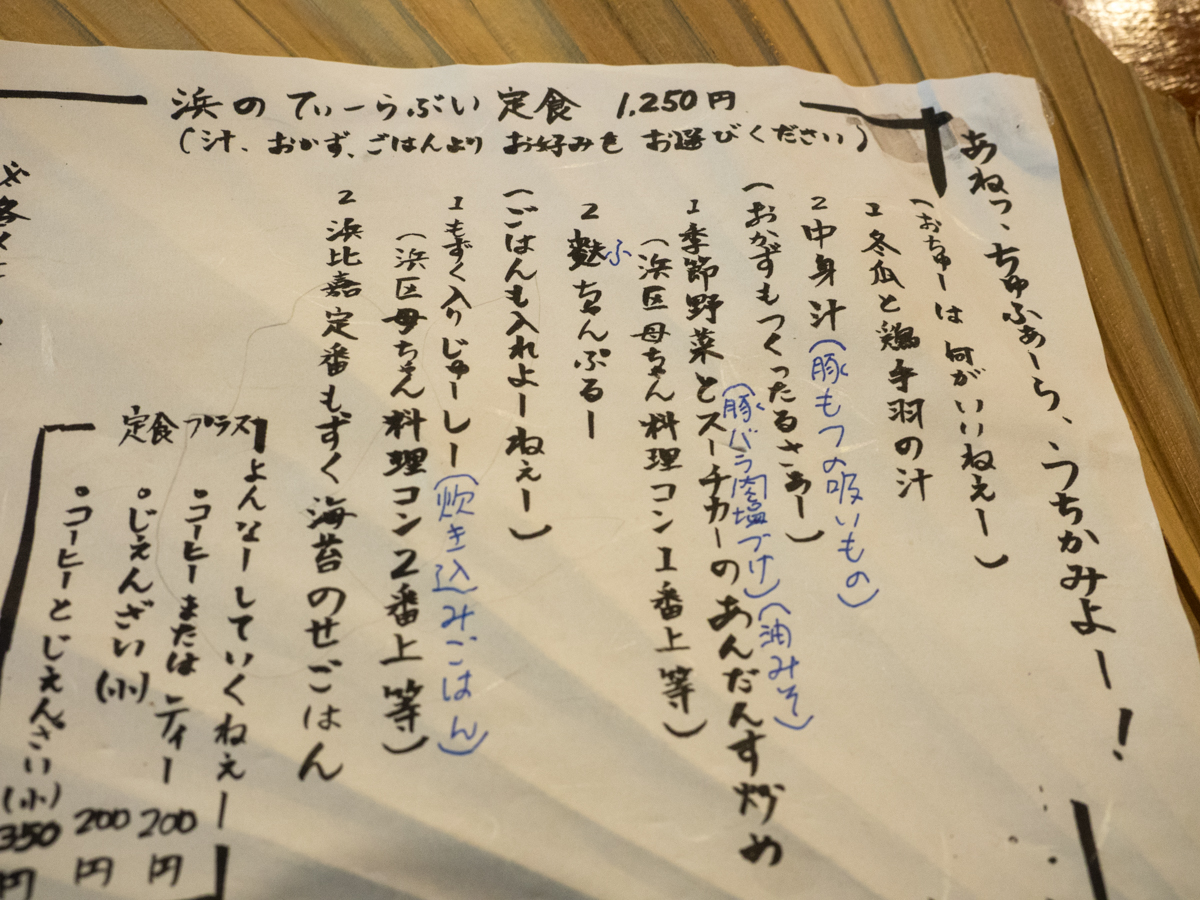 浜のてぃーらぶい定食 1,250円
(汁、おかず、ごはんより お好みを お選びください)
あねっ、ちゅふぁーら、うちかみよー!
(おちゅーは何がいいねぇー)
1 冬瓜と鶏手羽の汁
2 中身汁(豚もつの吸いもの)
(おかずもつくったるさぁー)
1 季節野菜とスーチカーのあんだんす炒め
(豚バラ肉塩づけ)(油みそ)
(浜区母ちゃん料理コン1番上等)
2 麩ちゃんぷるー
ふ
(ごはんも入れよーねぇー)
1 もずく入りじゅーしー(炊き込みごはん)
(浜区母ちゃん料理コン2番上等)
2 浜比嘉定番もずく海苔のせごはん
定食プラス
よんなーしていくねぇー
○コーヒーまたはティー 200円
○じぇんざい(小) 200円
○コーヒーとじぇんざい(小) 350円
※各